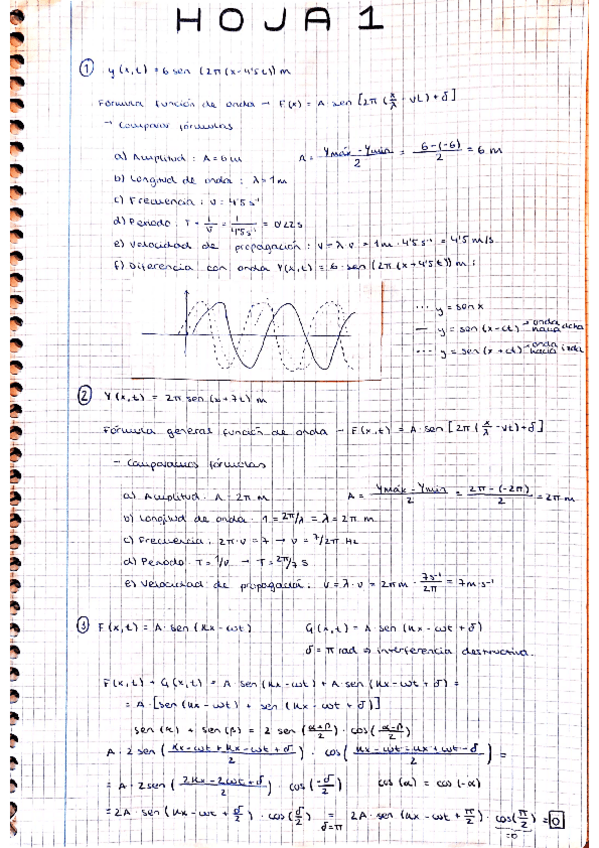 HOJA 1
① y(x,t) = 6 sen (2π(x-4'5t)) m
Fórmula función de onda → F(x) = A · sen [2π (x/λ - νt) + δ]
→ Comparar fórmulas
a) Amplitud : A = 6 m    A = (Ymáx - Ymín)/2 = (6-(-6))/2 = 6 m
b) Longitud de onda : λ = 1m
c) Frecuencia : ν = 4'5 s⁻¹
d) Periodo : T = 1/ν = 1/4'5 s⁻¹ = 0'22s
e) Velocidad de propagación : v = λ·ν = 1m · 4'5 s⁻¹ = 4'5 m/s
f) Diferencia con onda Y(x,t) = 6 · sen (2π (x+4'5t)) m :
··· y = sen x
— y = sen (x - ct) → onda hacia dcha
··· y = sen (x + ct) → onda hacia izda
② Y(x,t) = 2π sen (x+7t) m
Fórmula general función de onda → F(x,t) = A · sen [2π (x/λ - νt) + δ]
→ Comparamos fórmulas
a) Amplitud : A = 2π m    A = (Ymáx - Ymín)/2 = (2π-(-2π))/2 = 2π m
b) Longitud de onda : 1 = 2π/λ = λ = 2π m
c) Frecuencia : 2π·ν = 7 → ν = 7/2π Hz
d) Periodo : T = 1/ν → T = 2π/7 s
e) Velocidad de propagación : v = λ·ν = 2π m · 7s⁻¹/2π = 7m·s⁻¹
③ F(x,t) = A · sen (kx - ωt)    G(x,t) = A · sen (kx - ωt + δ)
δ = π rad ⇒ interferencia destructiva.
F(x,t) + G(x,t) = A · sen (kx - ωt) + A · sen (kx - ωt + δ) =
= A · [sen (kx - ωt) + sen (kx - ωt + δ)]
sen (α) + sen (β) = 2 sen ((α+β)/2) · cos ((α-β)/2)
A · 2 sen ((kx - ωt + kx - ωt + δ)/2) · cos ((kx - ωt - kx + ωt - δ)/2) =
= A · 2 sen ((2kx - 2ωt + δ)/2) · cos (-δ/2)    cos (α) = cos (-α)
= 2A · sen (kx - ωt + δ/2) · cos (δ/2) = 2A · sen (kx - ωt + π/2) · cos (π/2) = 0
δ=π    =0